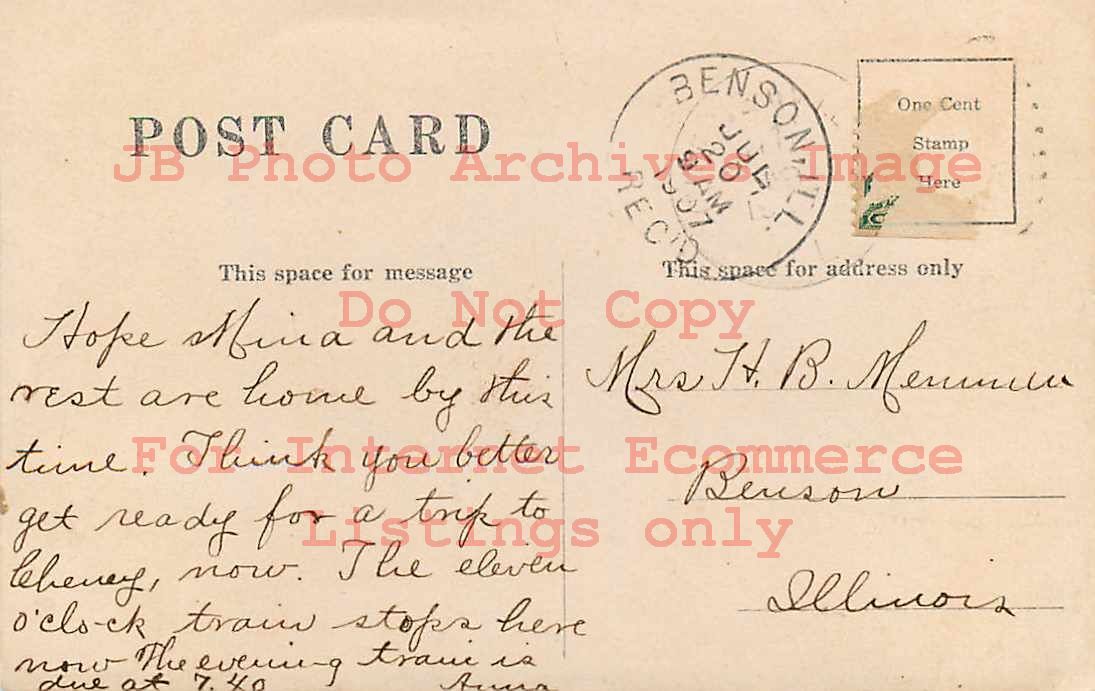 POST CARD
BENSON, ILL.
JUL
20
9 AM
1907
REC'D
One Cent
Stamp
Here
JB Photo Archives Image
This space for message
This space for address only
Do Not Copy
Hope Mina and the
rest are home by this
time. Think you better
get ready for a trip to
Cheney, now. The eleven
o'clock train stops here
now The evening train is
due at 7.40 Anna
Mrs H. B. Memmen
Benson
Illinois
For Internet Ecommerce
Listings only